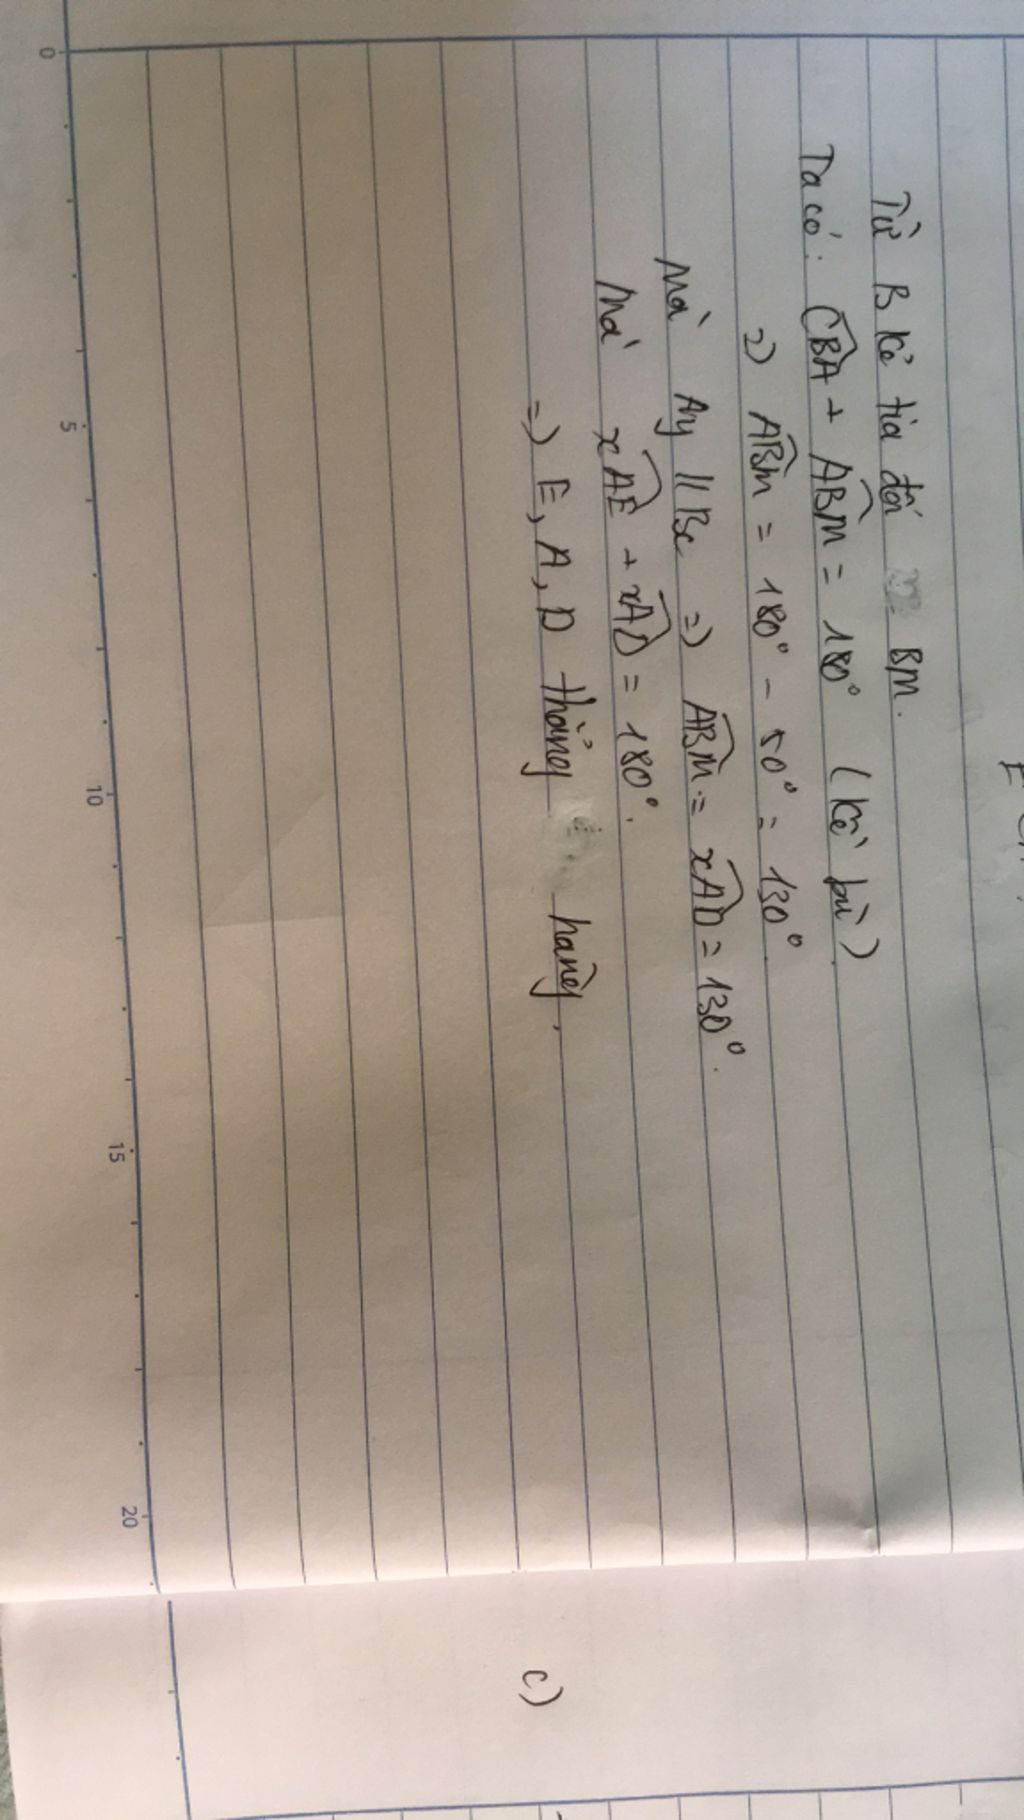 Từ B kẻ tia đối BM.
Ta có: CBA + ABM = 180° (kề bù)
=) ABM = 180° - 50° = 130°
Mà Ay // Bc =) ABM = xAD = 130°.
Mà xAE + xAD = 180°.
=) E, A, D thẳng hàng.
c)
0
5
10
15
20